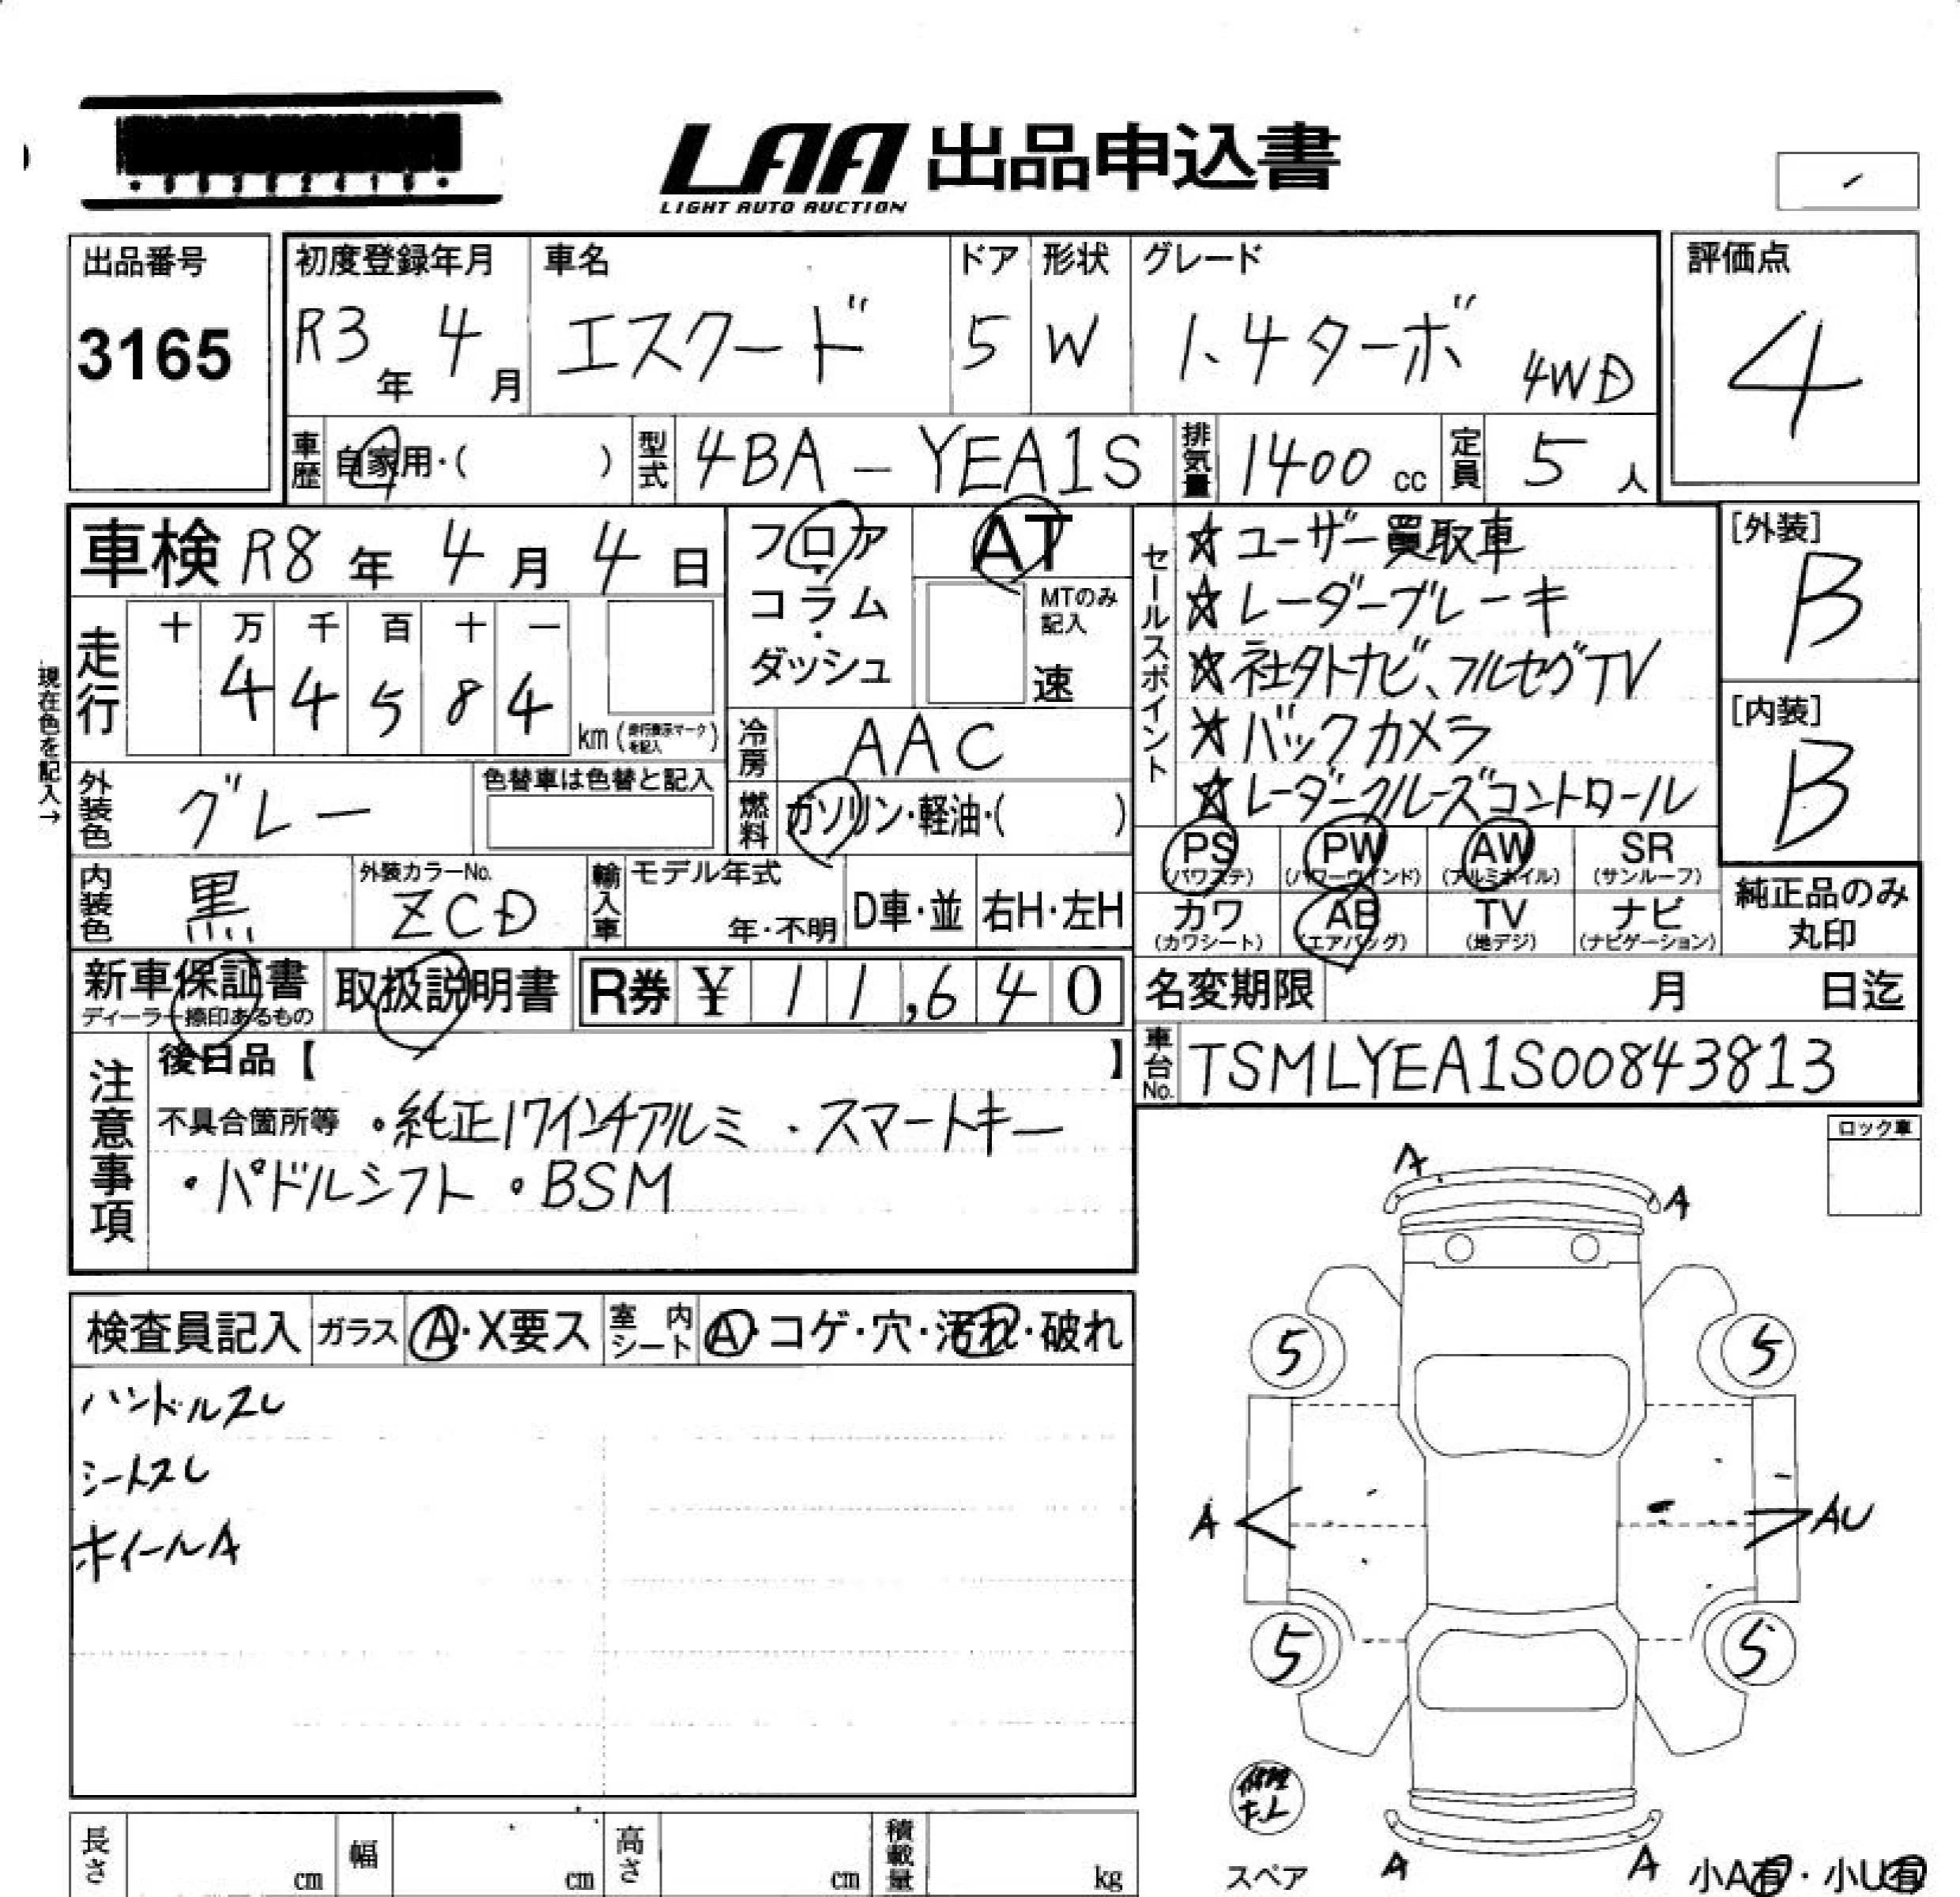 LAA 出品申込書
LIGHT AUTO AUCTION
出品番号
3165
初度登録年月
R3年 4月
車名
エスクード
ドア
5
形状
W
グレード
1.4ターボ 4WD
評価点
4
車歴
自家用・( )
型式
4BA-YEA1S
排気量
1400 cc
定員
5人
車検 R8年 4月 4日
フロア・コラム・ダッシュ
AT
MTのみ記入
速
セールスポイント
☆ユーザー買取車
☆レーダーブレーキ
☆社外ナビ、フルセグTV
☆バックカメラ
☆レーダークルーズコントロール
[外装]
B
[内装]
B
現在色を記入→
走行
十 万 千 百 十 一
4 4 5 8 4
km (走行表示マークを記入)
冷房
AAC
外装色
グレー
色替車は色替と記入
燃料
ガソリン・軽油・( )
PS (パワステ)
PW (パワーウインド)
AW (アルミホイル)
SR (サンルーフ)
カワ (カワシート)
AB (エアバッグ)
TV (地デジ)
ナビ (ナビゲーション)
純正品のみ丸印
内装色
黒
外装カラーNo.
ZCD
輸入車
モデル年式
年・不明
D車・並
右H・左H
新車保証書
ディーラー捺印あるもの
取扱説明書
R券 ¥11,640
名変期限 月 日迄
車台No.
TSMLYEA1S00843813
注意事項
後日品【 】
不具合箇所等 ・純正17インチアルミ ・スマートキー
・パドルシフト ・BSM
ロック車
検査員記入
ガラス
A・X要ス
室内シート
A・コゲ・穴・汚れ・破れ
ハンドルスレ
シートスレ
ホイールA
A
A
5
5
A
AU
5
5
修理キット
スペア
A
A
小A有・小U有
長さ cm
幅 cm
高さ cm
積載量 kg